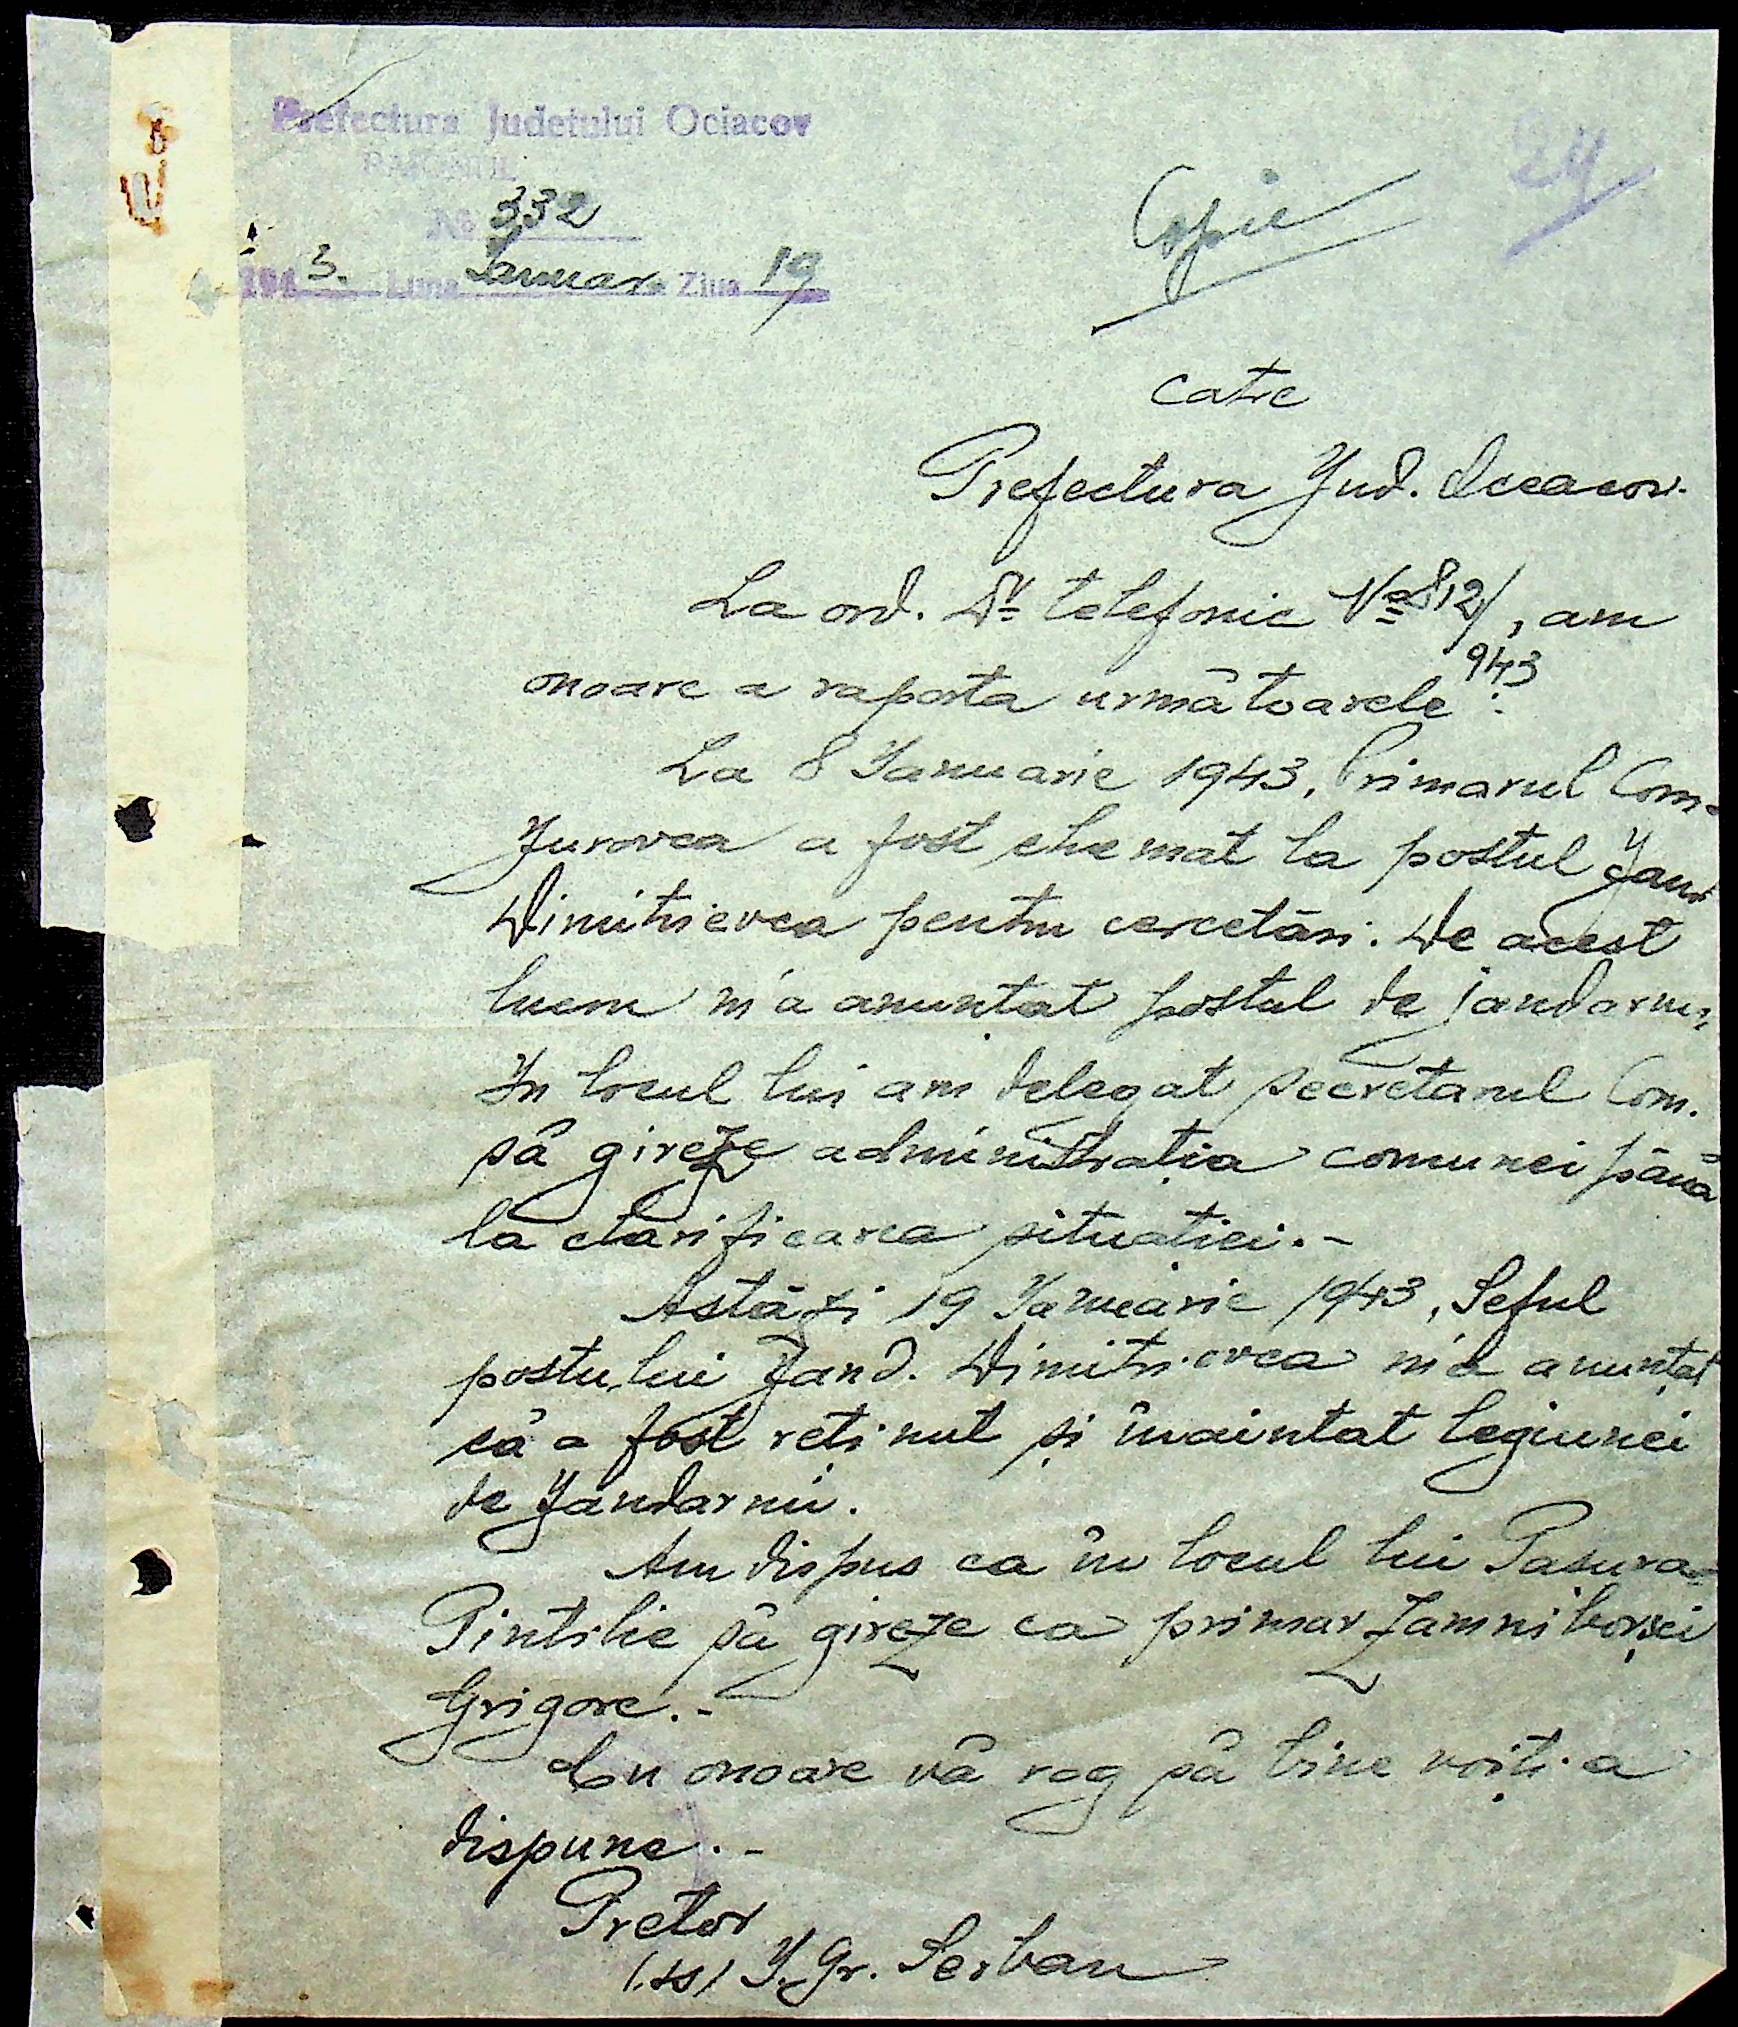 Prefectura Judetului Ociacov
RAIONUL
No 332
1943. Luna Ianuarie Ziua 19
24
Copie
catre
Prefectura Jud. Oceacov.
La ord. Dv telefonic No 812/943, am
onoare a raporta următoarele:
La 8 Ianuarie 1943, Primarul Com.
Jurovca a fost chemat la postul Jand
Dimitrievca pentru cercetări. De acest
lucru m'a anunțat postul de jandarmi,
In locul lui am delegat secretarul Com.
să gireze administrația comunei până
la clarificarea situatiei.-
Astăzi 19 Ianuarie 1943, Seful
postului Jand. Dimitrievca m'a anunțat
că a fost reținut și înaintat legiunei
de Jandarmi.
Am dispus ca în locul lui Pasura
Pintilie să gireze ca primar Zamniborșci
Grigore.-
Cu onoare vă rog să bine voiți a
dispune.-
Pretor
(ss) I. Gr. Serban